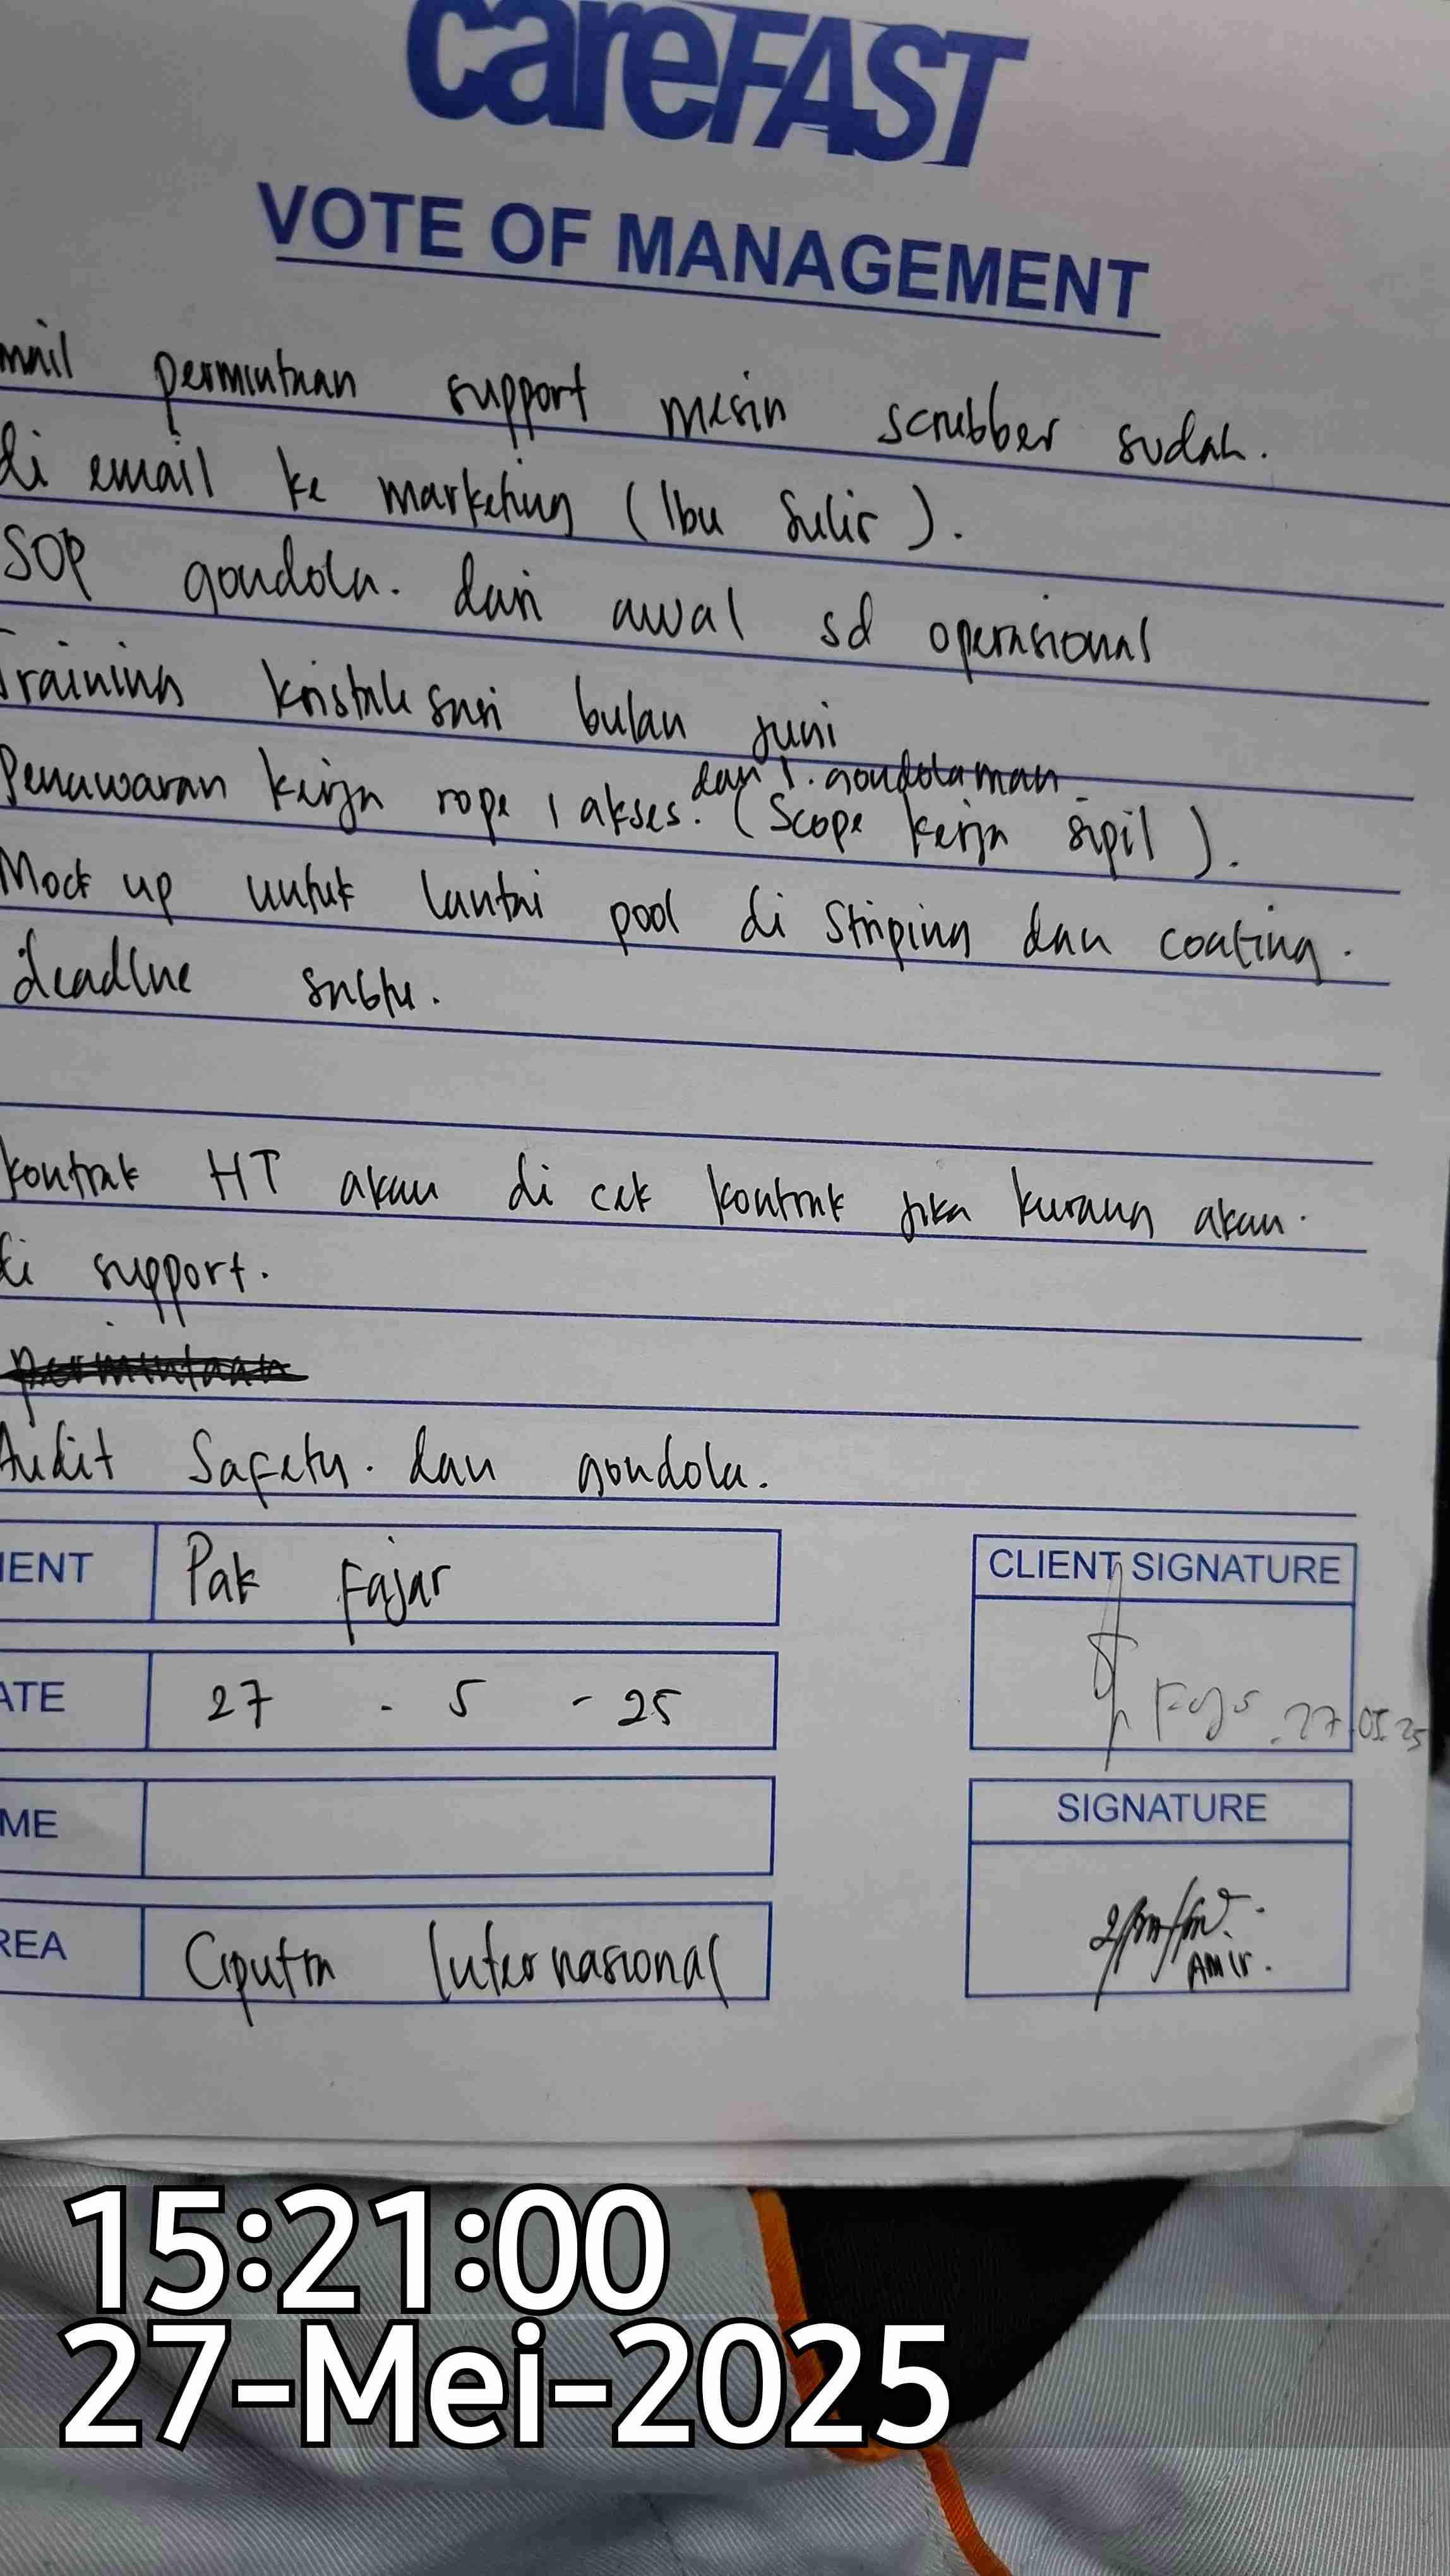 careFAST
VOTE OF MANAGEMENT
mail permintaan support mesin scrubber sudah.
di email ke marketing (Ibu Sulis).
SOP gondola. dari awal sd operasional
Training kristalisasi bulan juni
dan 1. gondolaman
Penawaran kerja rope 1 akses. (Scope kerja sipil).
Mock up untuk lantai pool di Striping dan coating.
deadline sabtu.
kontrak HT akan di cek kontrak jika kurang akan.
di support.
permintaan
Audit Safety. dan gondola.
IENT Pak Fajar
CLIENT SIGNATURE
ATE 27 - 5 - 25
Fajr . 27.05.25
ME
SIGNATURE
REA Ciputra Internasional
AMIR.
15:21:00
27-Mei-2025